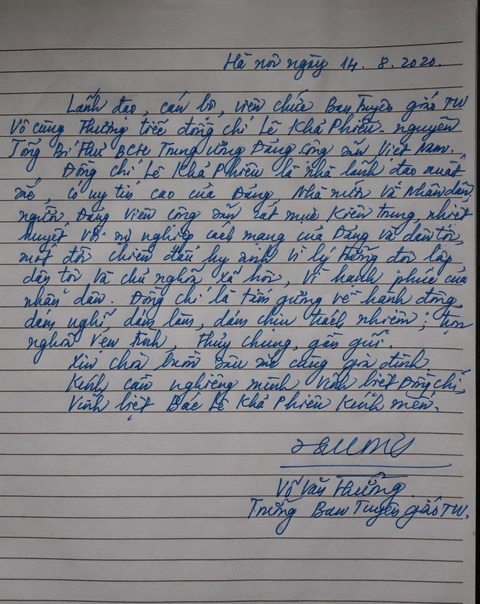 Hà nội ngày 14. 8. 2020.
Lãnh đạo, cán bộ, viên chức Ban Tuyên giáo TW
Vô cùng thương tiếc đồng chí Lê Khả Phiêu - nguyên
Tổng Bí thư BCH Trung ương Đảng Cộng sản Việt Nam.
Đồng chí Lê Khả Phiêu là nhà lãnh đạo xuất
sắc, có uy tín cao của Đảng, Nhà nước và Nhân dân,
người Đảng viên cộng sản rất mực Kiên trung, nhiệt
huyết với sự nghiệp cách mạng của Đảng và dân tộc,
một đời chiến đấu hy sinh vì lý tưởng độc lập
dân tộc và chủ nghĩa xã hội, vì hạnh phúc của
nhân dân. Đồng chí là tấm gương về hành động,
dám nghĩ, dám làm, dám chịu trách nhiệm; trọn
nghĩa vẹn tình, thủy chung, gần gũi.
Xin chia buồn sâu sắc cùng gia đình
Kính cẩn nghiêng mình vĩnh biệt Đồng chí,
Vĩnh biệt Bác Lê Khả Phiêu Kính mến.
Võ Văn Thưởng
Trưởng Ban Tuyên giáo TW.